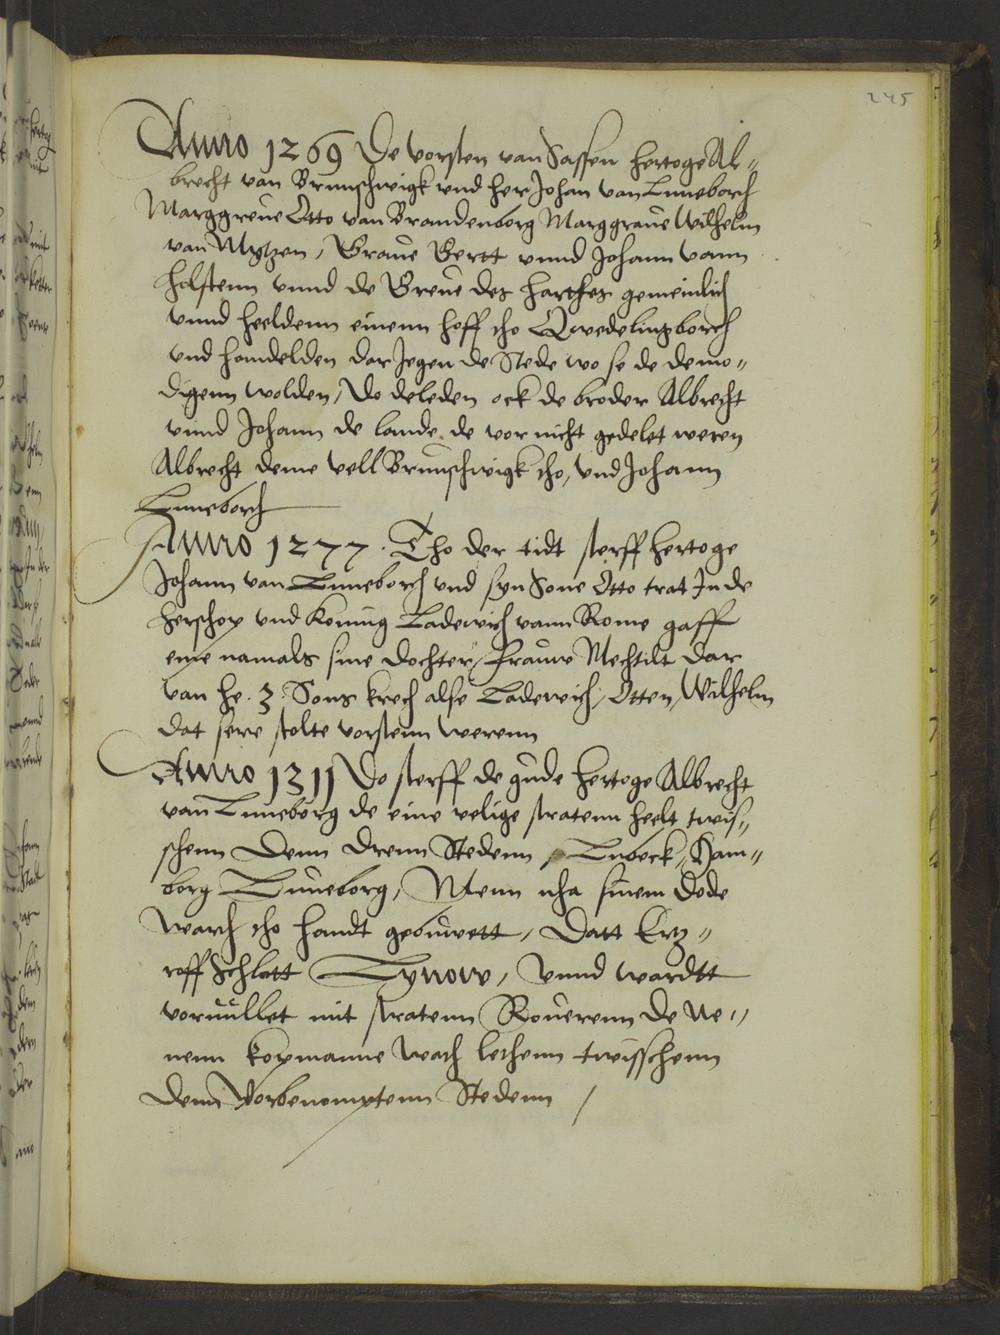 245
Anno 1269 De vorsten van Sassen hertoge Al„
brecht van Brunschwigk vnd her Johan van Luneborch
Marggreue Otto van Brandenborg Marggraue Wilhelm
van Mytzen, Graue Gertt vnnd Johann vann
holstenn vnnd de Greue des harthes gemeinlich
vnnd heeldenn einenn hoff tho Qwedelingborch
vnd handelden dar Jegen de Stede wo se de demo„
digenn wolden, Do deleden ock de broder Albrecht
vnnd Johann de lande de vor nicht gedelet weren
Albrecht deme vell Brunschwigk tho, vnd Johann
Luneborch
Anno 1277. Tho der tidt sterff hertoge
Johann van Luneborch vnd syn Sone Otto trat In de
herschop vnd Koning Ladewich vann Rome gaff
eme namals sine dochter frauwe Mechtilt dar
van he .3. Sons krech alse Ladewich, Otten, Wilhelm
dat sere stolte vorstenn werenn
Anno 1311 Do sterff de gude hertoge Albrecht
van Luneborg de eine velige stratenn heelt twis„
schenn Denn Drenn Stedenn, Lubeck, Ham„
borg Luneborg, Menn nha sinem Dode
warth tho handt gebuwett, Datt Ertz„
roff Schlott Lynow, Vnnd wardtt
voruullet mit stratenn Rouerenn De Ne„
nenn kopmanne wath lethenn twisschenn
Denn Vorbenomptenn Stedenn /